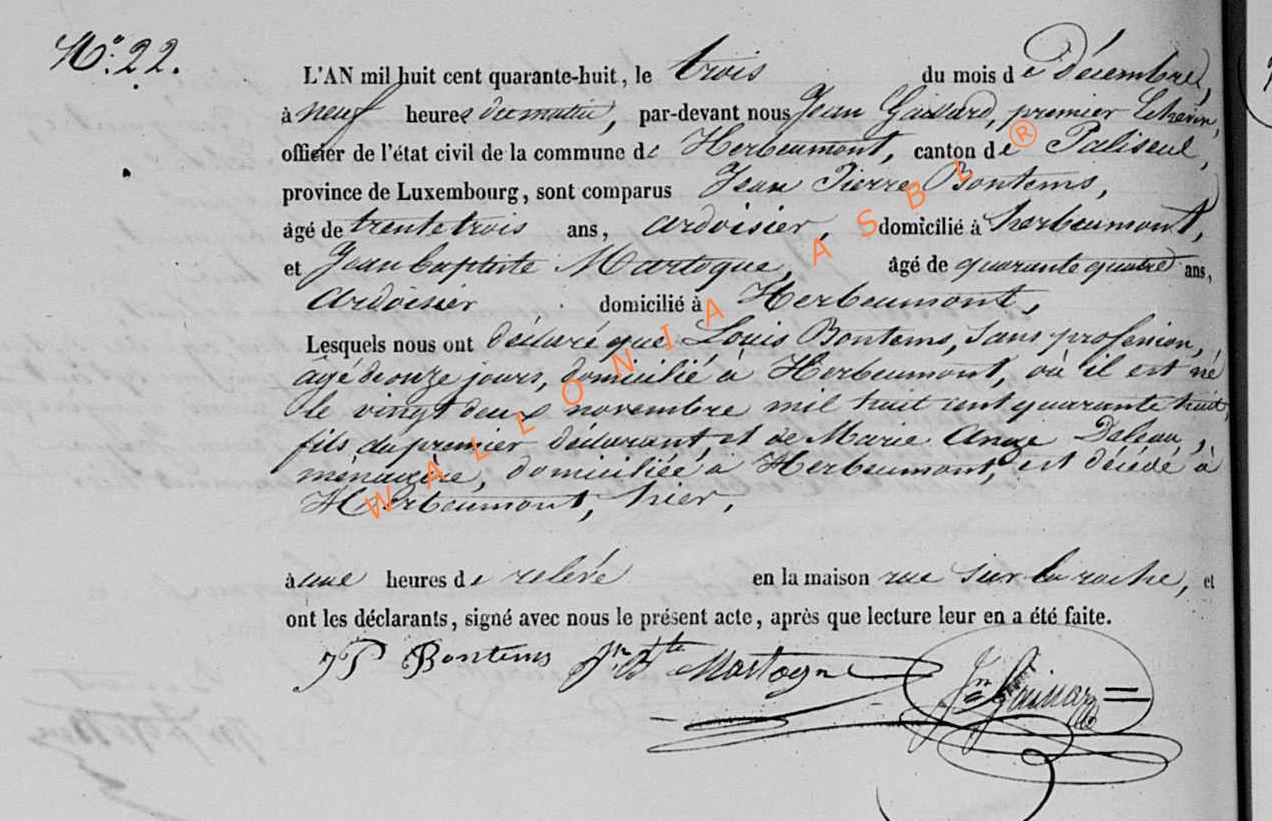 N° 22.
L'AN mil huit cent quarante-huit, le trois du mois de décembre,
à neuf heures du matin, par-devant nous Jean Gaillard, premier Echevin,
officier de l'état civil de la commune de Herbeumont, canton de Paliseul,
province de Luxembourg, sont comparus Jean Pierre Bontems,
âgé de trente trois ans, ardoisier, domicilié à herbeumont,
et Jean baptiste Martogne, âgé de quarante quatre ans,
ardoisier domicilié à Herbeumont,
Lesquels nous ont déclaré que Louis Bontems, sans profession,
âgé de onze jours, domicilié à Herbeumont, où il est né
le vingt deux novembre mil huit cent quarante huit,
fils du premier déclarant, et de Marie Ange Deleau,
menagère, domiciliée à Herbeumont, est décédé à
Herbeumont, hier,
à une heures de relevé en la maison rue sur la roche, et
ont les déclarants, signé avec nous le présent acte, après que lecture leur en a été faite.
JP Bontems Jn Bte Martogne Jn Gaillard
WALLONIA ASBL ®